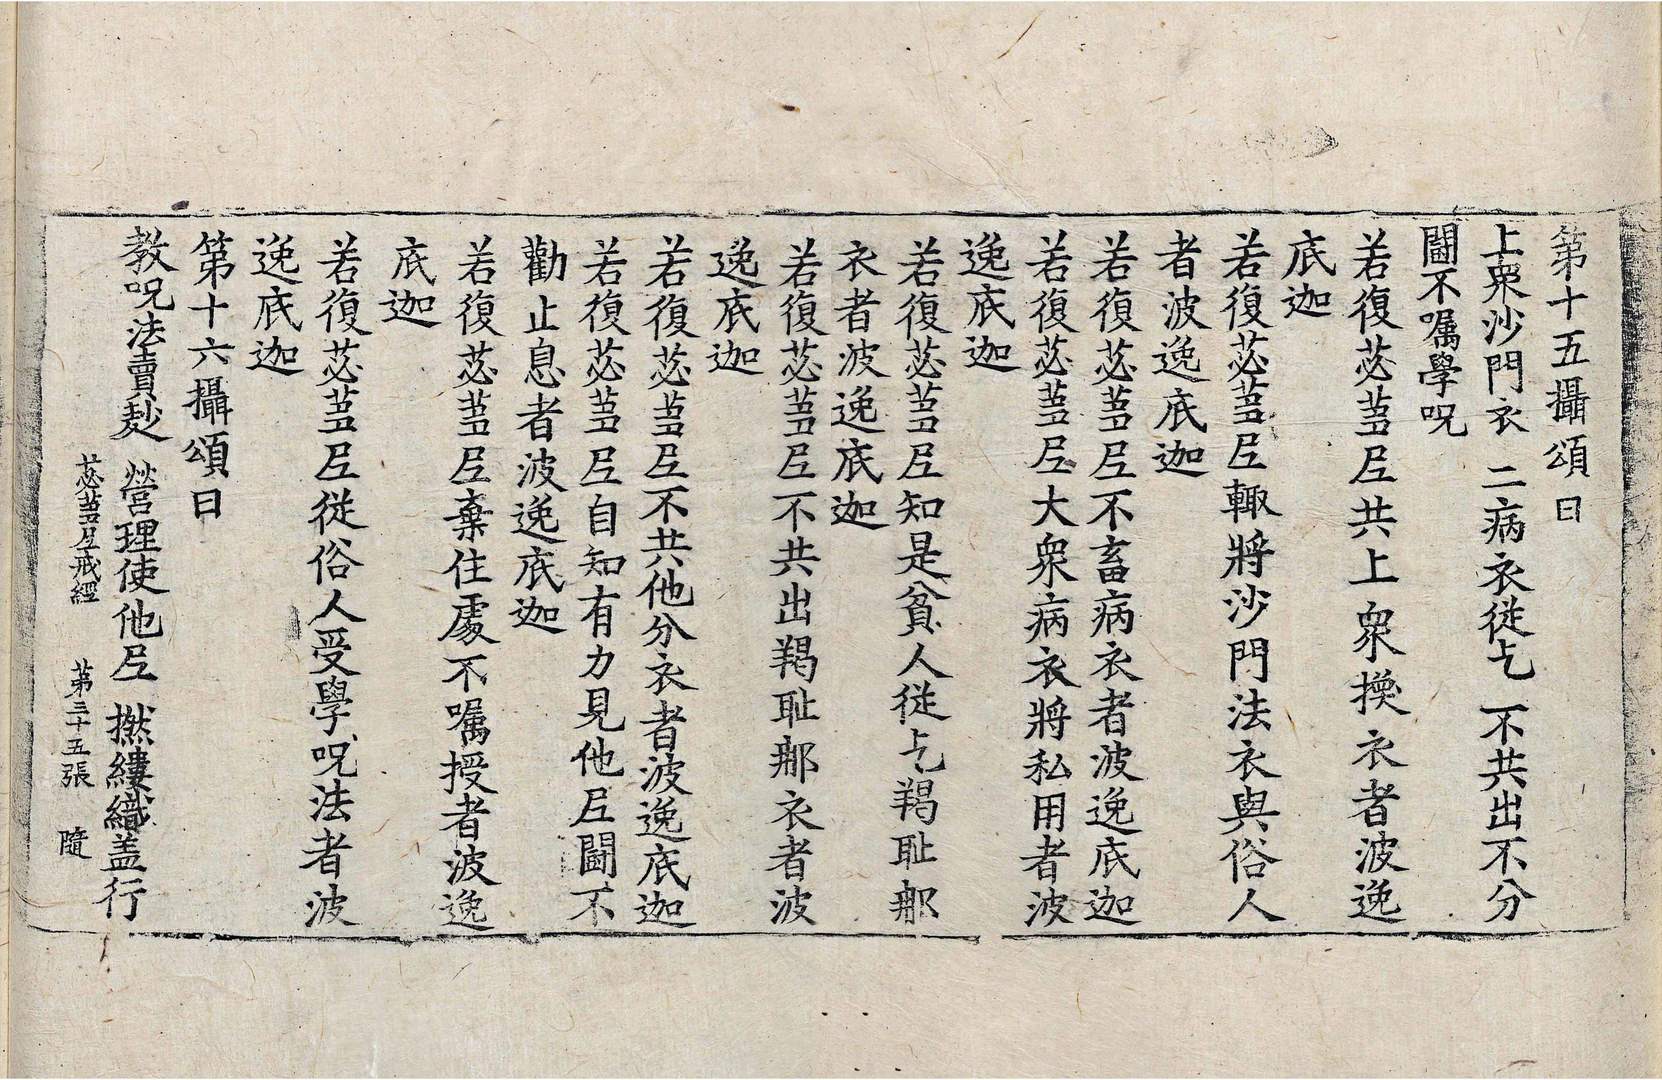 第十五攝頌曰
上衆沙門衣　二病衣從乞　不共出不分
鬪不囑學呪
若復苾芻尼共上衆換衣者波逸
底迦
若復苾芻尼輙將沙門法衣與俗人
者波逸底迦
若復苾芻尼不畜病衣者波逸底迦
若復苾芻尼大衆病衣將私用者波
逸底迦
若復苾芻尼知是貧人從乞羯恥那
衣者波逸底迦
若復苾芻尼不共出羯恥那衣者波
逸底迦
若復苾芻尼不共他分衣者波逸底迦
若復苾芻尼自知有力見他尼鬪不
勸止息者波逸底迦
若復苾芻尼棄住處不囑授者波逸
底迦
若復苾芻尼從俗人受學呪法者波
逸底迦
第十六攝頌曰
教呪法賣麨　營理使他尼　撚縷織盖行
苾芻尼戒經　第三十五張　隨